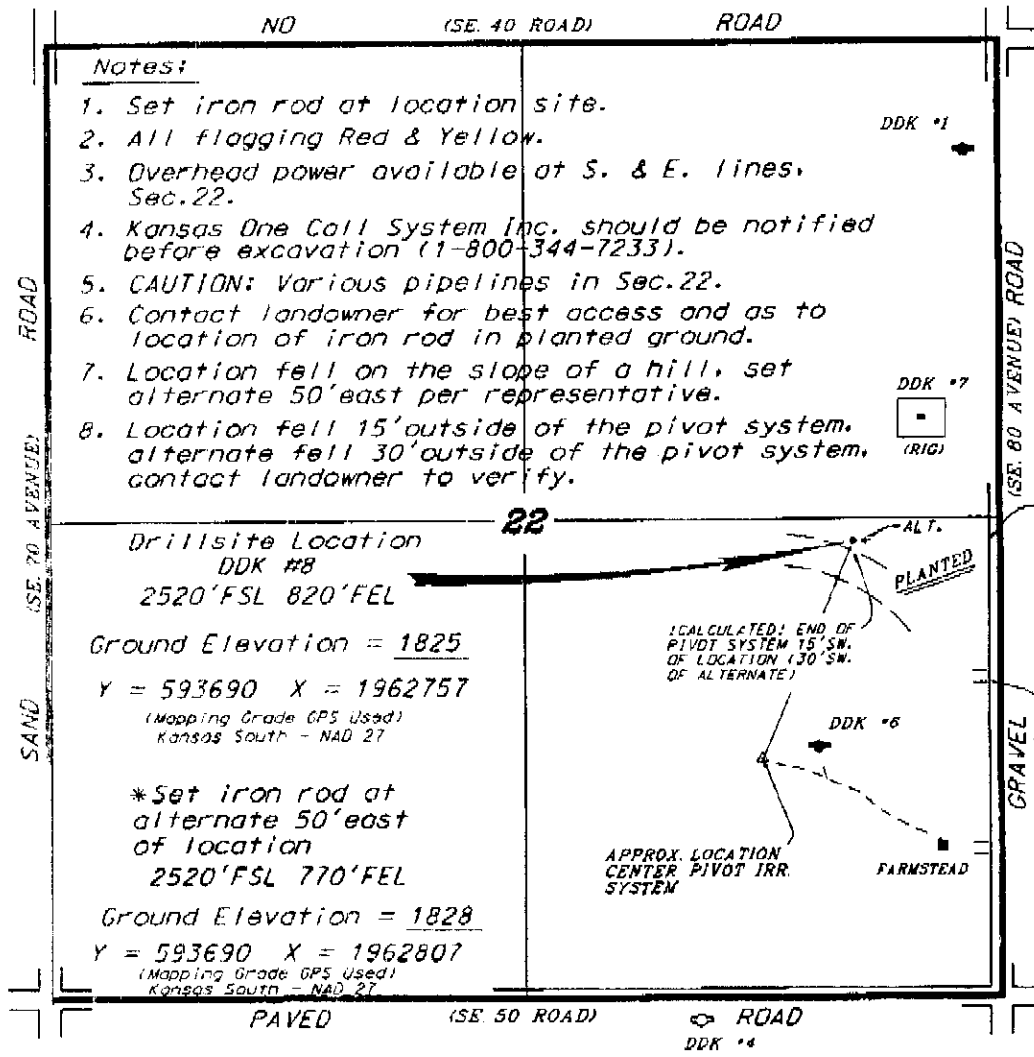 NO (SE. 40 ROAD) ROAD
Notes:
1. Set iron rod at location site.
2. All flagging Red & Yellow.
3. Overhead power available at S. & E. lines,
Sec.22.
4. Kansas One Call System Inc. should be notified
before excavation (1-800-344-7233).
5. CAUTION: Various pipelines in Sec.22.
6. Contact landowner for best access and as to
location of iron rod in planted ground.
7. Location fell on the slope of a hill, set
alternate 50'east per representative.
8. Location fell 15'outside of the pivot system,
alternate fell 30'outside of the pivot system,
contact landowner to verify.
DDK #1
DDK #7
(RIG)
SAND (SE. 70 AVENUE) ROAD
GRAVEL (SE. 80 AVENUE) ROAD
22
Drillsite Location
DDK #8
2520'FSL 820'FEL
Ground Elevation = 1825
Y = 593690 X = 1962757
(Mapping Grade GPS Used)
Kansas South - NAD 27
*Set iron rod at
alternate 50'east
of location
2520'FSL 770'FEL
Ground Elevation = 1828
Y = 593690 X = 1962807
(Mapping Grade GPS Used)
Kansas South - NAD 27
ALT.
PLANTED
(CALCULATED) END OF
PIVOT SYSTEM 15'SW.
OF LOCATION (30'SW.
OF ALTERNATE)
DDK #6
APPROX. LOCATION
CENTER PIVOT IRR.
SYSTEM
FARMSTEAD
PAVED (SE. 50 ROAD) ROAD
DDK #4